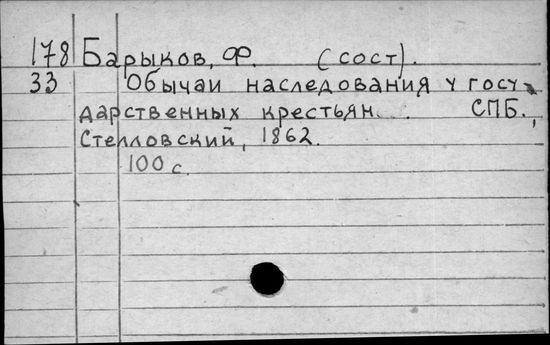 178 Барыков, Ф. (сост).
33 Обычаи наследования у госу
дарственных крестьян. СПБ.,
Стелловский, 1862.
100 с.